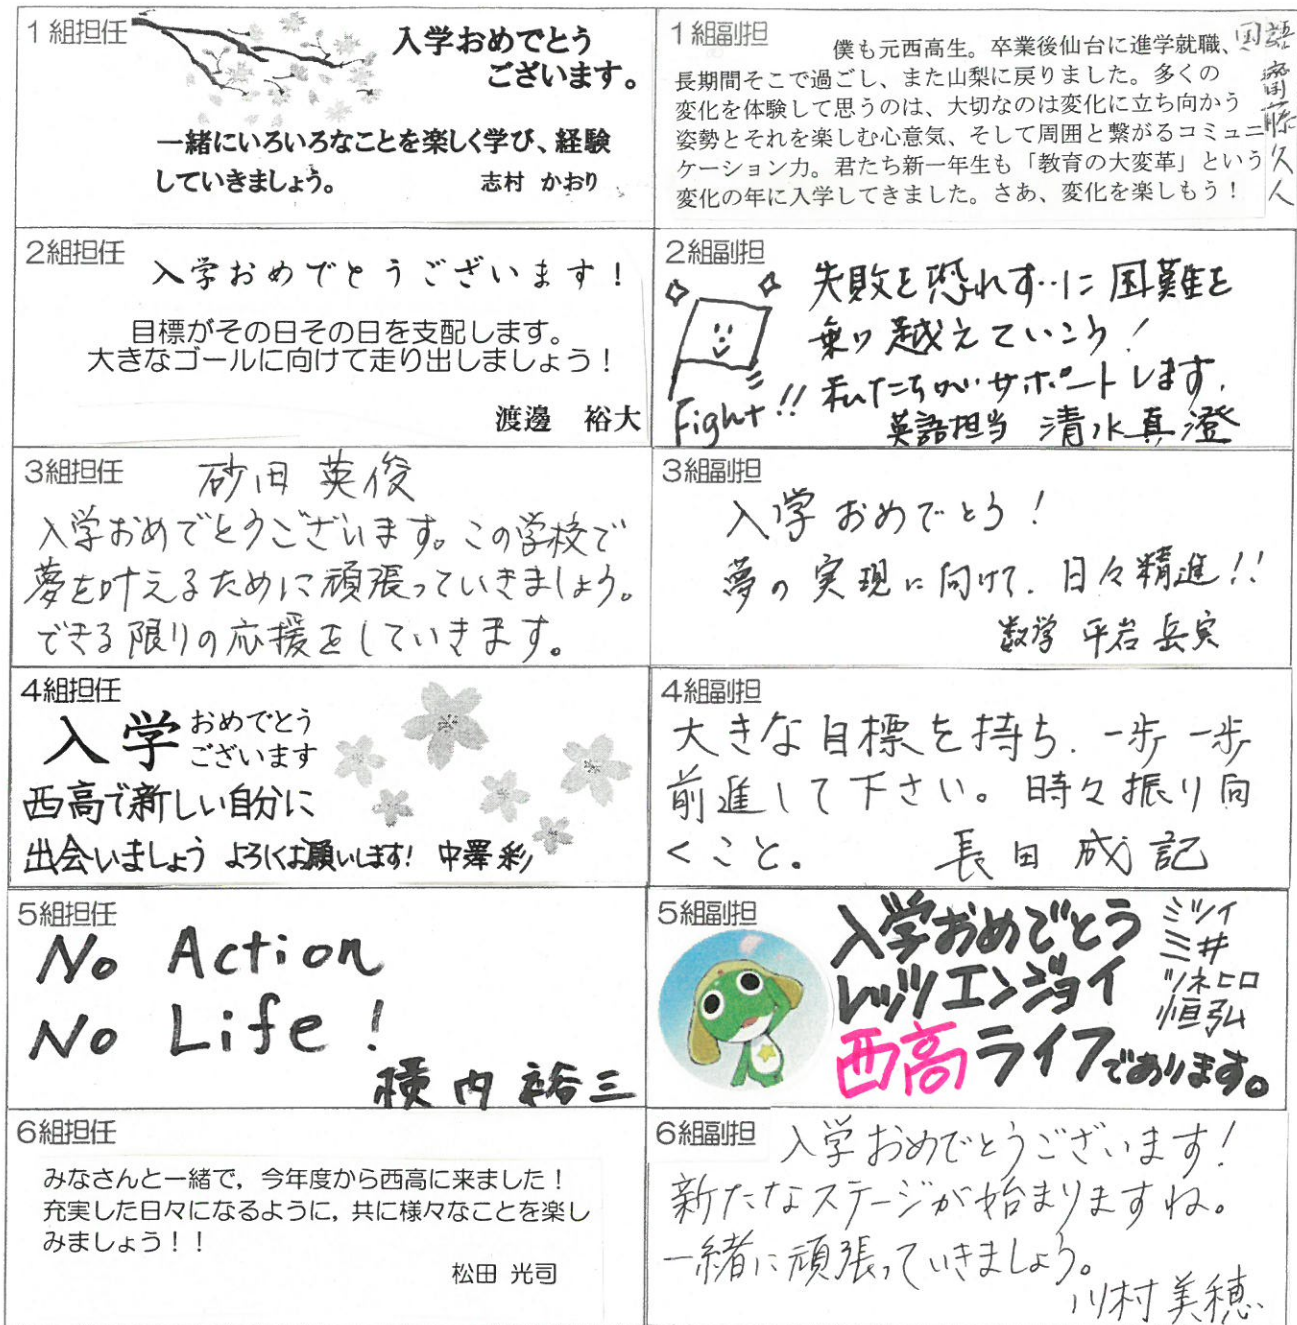 1組担任
入学おめでとう
ございます。
一緒にいろいろなことを楽しく学び、経験
していきましょう。
志村 かおり
1組副担
国語 齋藤久人
僕も元西高生。卒業後仙台に進学就職、
長期間そこで過ごし、また山梨に戻りました。多くの
変化を体験して思うのは、大切なのは変化に立ち向かう
姿勢とそれを楽しむ心意気、そして周囲と繋がるコミュニ
ケーション力。君たち新一年生も「教育の大変革」という
変化の年に入学してきました。さあ、変化を楽しもう！
2組担任
入学おめでとうございます！
目標がその日その日を支配します。
大きなゴールに向けて走り出しましょう！
渡邊 裕大
2組副担
失敗を恐れずに困難を
乗り越えていこう！
私たちがサポートします.
Fight!!
英語担当 清水真澄
3組担任
砂田 英俊
入学おめでとうございます。この学校で
夢を叶えるために頑張っていきましょう。
できる限りの応援をしていきます。
3組副担
入学おめでとう！
夢の実現に向けて、日々精進!!
数学 平岩 岳実
4組担任
入学おめでとう
ございます
西高で新しい自分に
出会いましょう よろしくお願いします! 中澤 彩
4組副担
大きな目標を持ち、一歩一歩
前進して下さい。時々振り向
くこと。
長田 成記
5組担任
No Action
No Life!
横内 裕三
5組副担
入学おめでとう
レッツエンジョイ
西高ライフであります。
ミツイ
三井
ツネヒロ
恒弘
6組担任
みなさんと一緒で，今年度から西高に来ました！
充実した日々になるように，共に様々なことを楽し
みましょう！！
松田 光司
6組副担
入学おめでとうございます！
新たなステージが始まりますね。
一緒に頑張っていきましょう。
川村 美穂